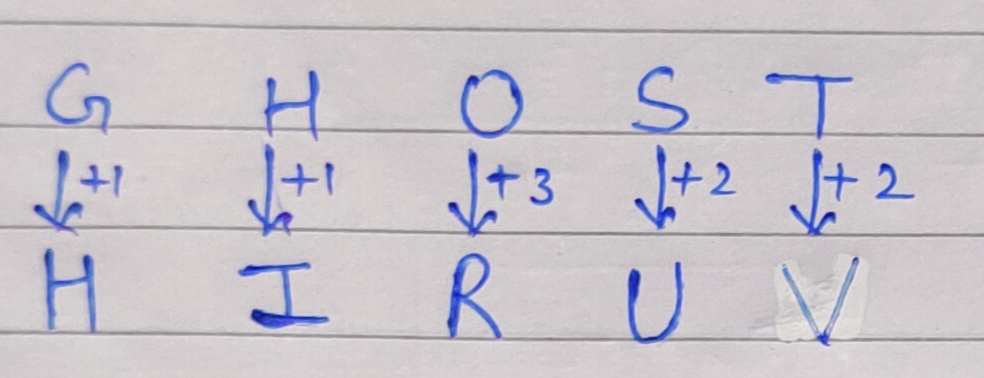 G H O S T
↓+1 ↓+1 ↓+3 ↓+2 ↓+2
H I R U V